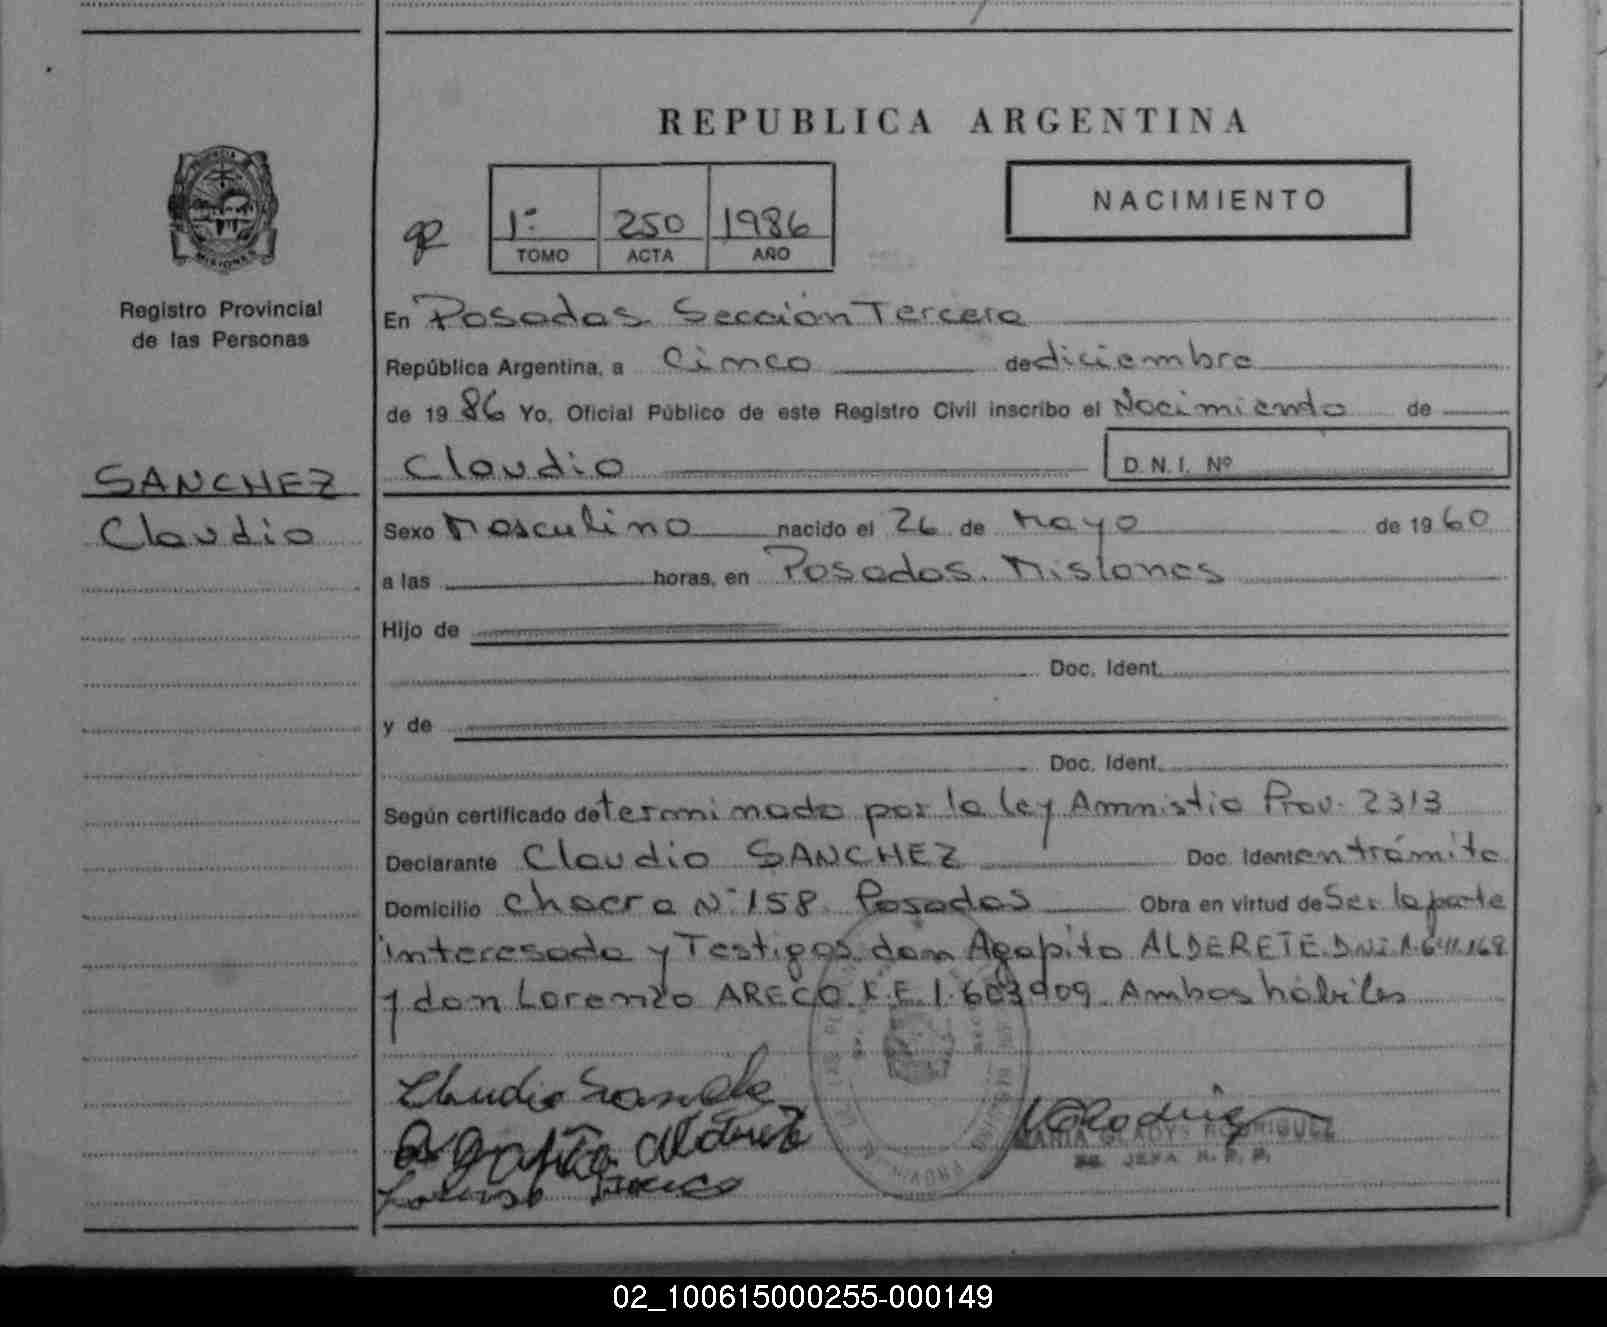 REPUBLICA ARGENTINA
NACIMIENTO
1º 250 1986
TOMO ACTA AÑO
Registro Provincial
de las Personas
En Posadas. Sección Tercera
República Argentina, a Cinco de diciembre
de 19 86 Yo, Oficial Público de este Registro Civil inscribo el Nacimiento de
Claudio D.N.I. Nº
SANCHEZ
Claudio
Sexo Masculino nacido el 26 de Mayo de 19 60
a las horas, en Posadas. Misiones
Hijo de
Doc. Ident.
y de
Doc. Ident.
Según certificado determinado por la Ley Amnistia Prov. 2313
Declarante Claudio SANCHEZ Doc. Ident en trámite
Domicilio Chacra Nº 158 Posadas Obra en virtud de Ser la parte
interesada y Testigos don Agapito ALDERETE. D.N.I.
y don Lorenzo ARECO. L.E. 1.603909. Ambos hábiles
Claudio Sanche
Agapito Alderete
Lorenso Areco
MARIA GLADYS RODRIGUEZ
JEFA R. P. P.
02_100615000255-000149